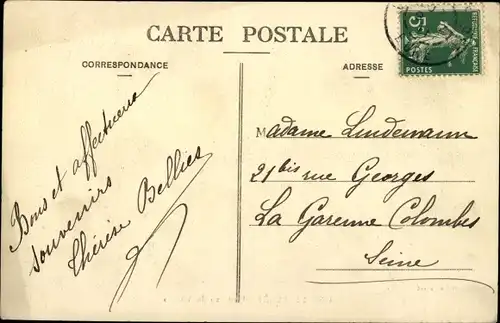 CARTE POSTALE
CORRESPONDANCE
ADRESSE
5c
REPUBLIQUE FRANÇAISE
POSTES
Bons et affectueux
souvenirs
Thérèse Bellier
Madame Lindemann
21 bis rue Georges
La Garenne Colombes
Seine